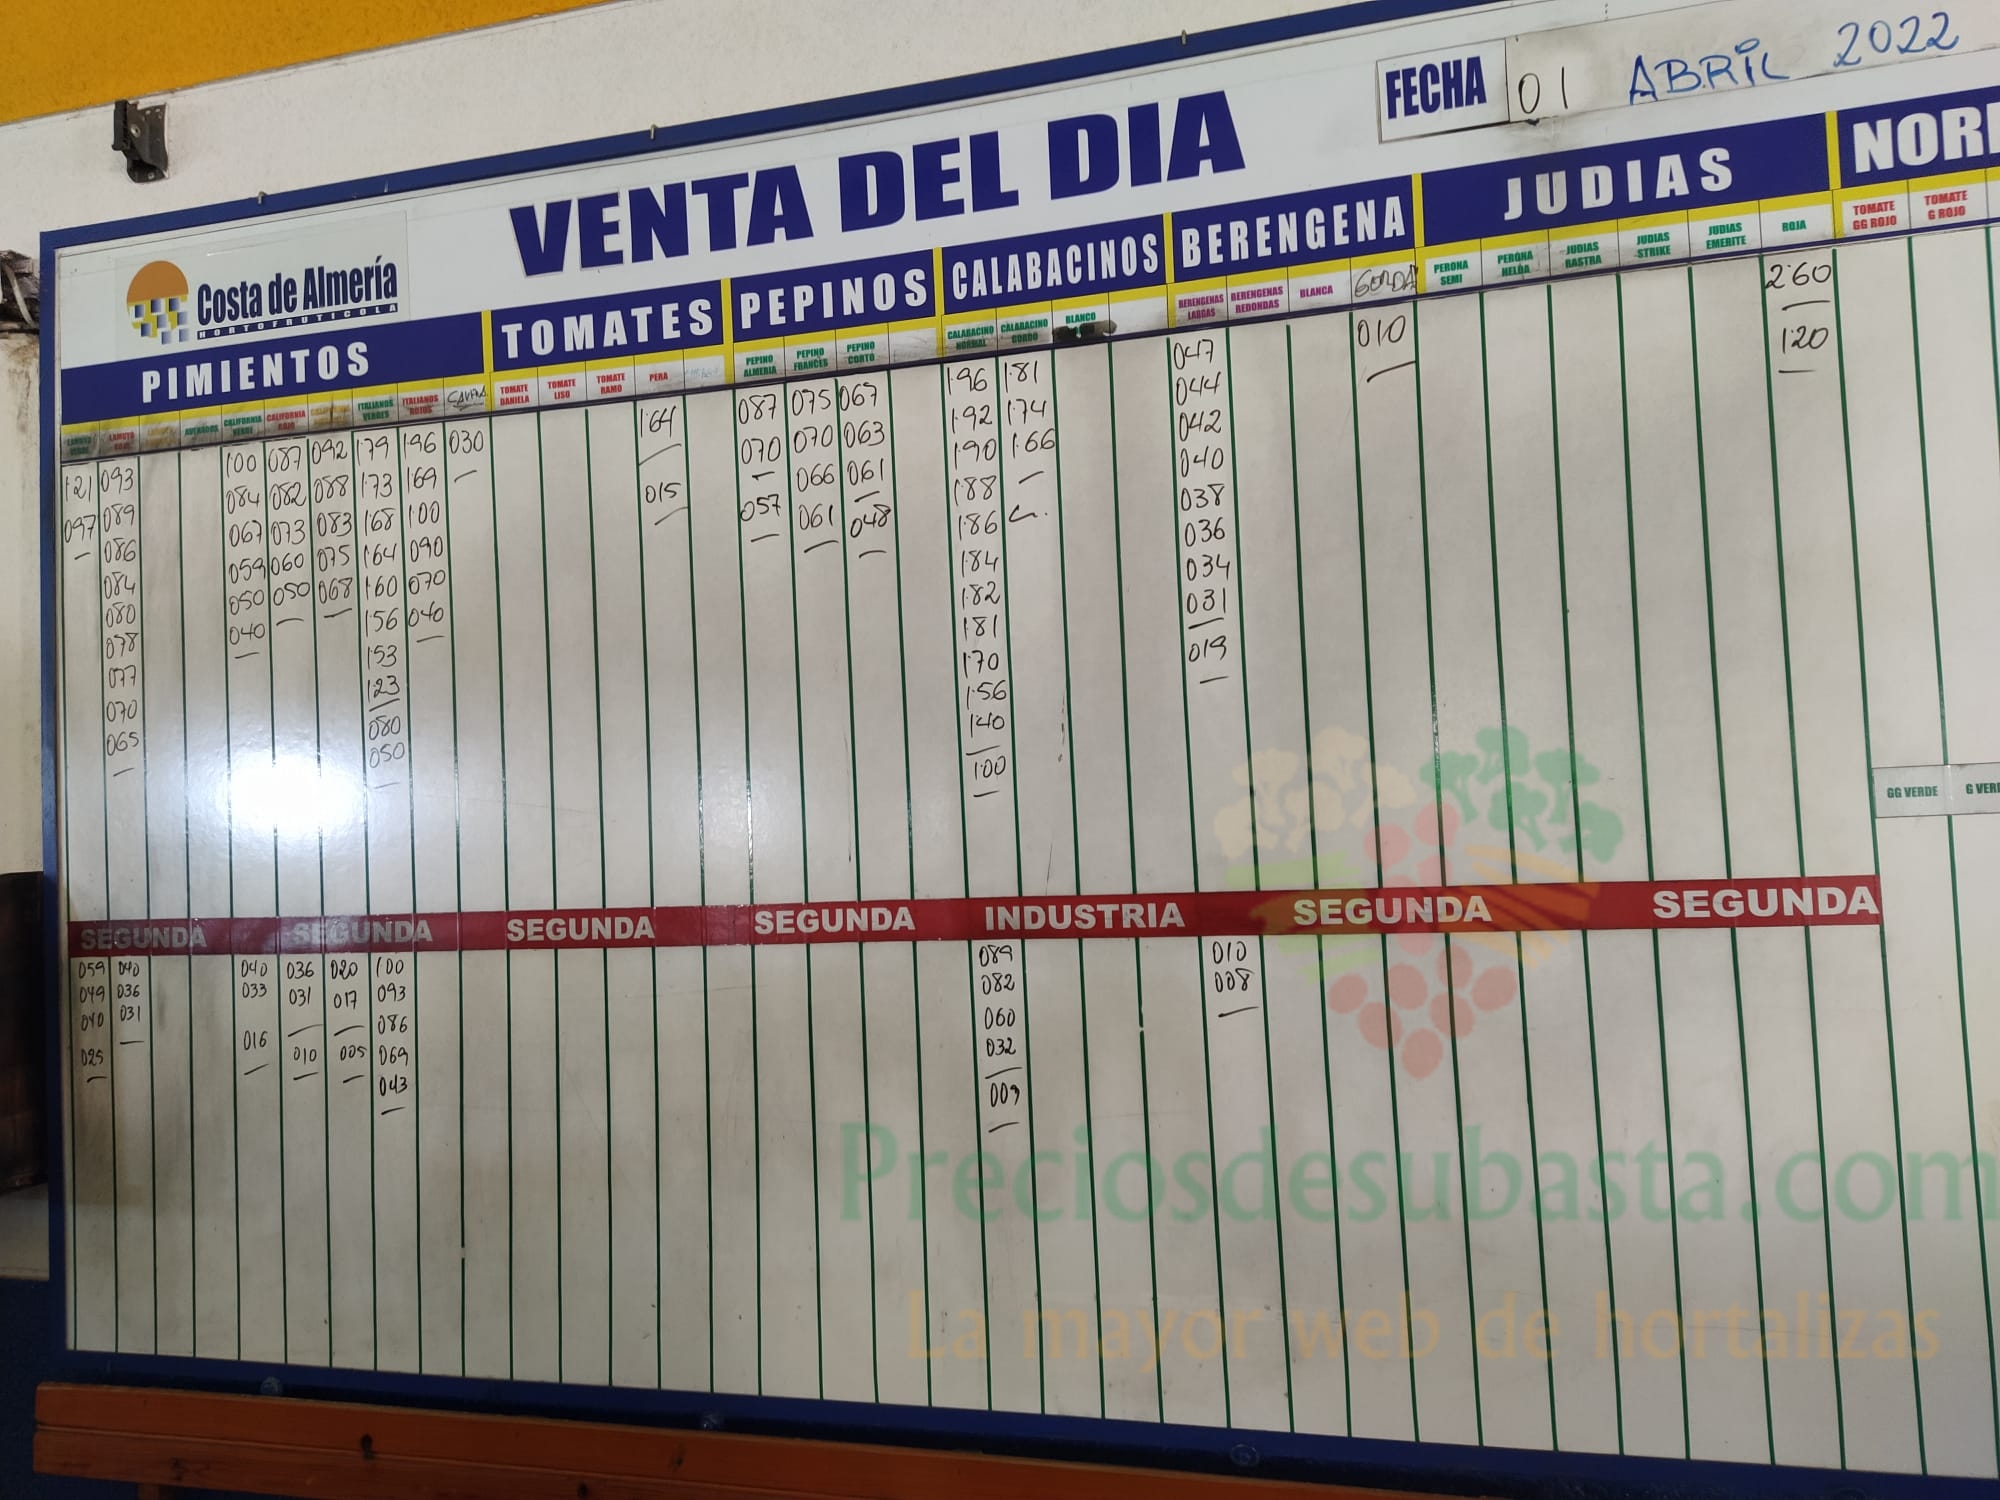 FECHA 01 ABRIL 2022
VENTA DEL DIA
Costa de Almería
HORTOFRUTICOLA
PIMIENTOS TOMATES PEPINOS CALABACINOS BERENGENA JUDIAS NORI
LAMUYO VERDE
LAMUYO ROJO
AVERADOS
CALIFORNIA VERDE
CALIFORNIA ROJO
ITALIANOS VERDES
ITALIANOS ROJOS
TOMATE DANIELA
TOMATE LISO
TOMATE RAMO
PERA
PEPINO ALMERIA
PEPINO FRANCES
PEPINO CORTO
CALABACINO NORMAL
CALABACINO GORDO
BLANCO
BERENGENAS LARGAS
BERENGENAS REDONDAS
BLANCA
GORDA
PERONA SEMI
PERONA HELDA
JUDIAS RASTRA
JUDIAS STRIKE
JUDIAS EMERITE
ROJA
TOMATE GG ROJO
TOMATE G ROJO
1'21
097
093
089
086
084
080
078
077
070
065
1'00
084
067
059
050
040
087
082
073
060
050
092
088
083
075
068
1'79
1'73
1'68
1'64
1'60
1'56
1'53
1'23
080
050
1'96
1'69
1'00
090
070
040
030
1'64
015
087
070
057
075
070
066
061
067
063
061
048
1'96
1'92
1'90
1'88
1'86
1'84
1'82
1'81
1'70
1'56
1'40
1'00
1'81
1'74
1'66
047
044
042
040
038
036
034
031
019
010
2'60
1'20
GG VERDE
G VERD
SEGUNDA SEGUNDA SEGUNDA SEGUNDA INDUSTRIA SEGUNDA SEGUNDA
059
049
040
025
040
036
031
040
033
016
036
031
010
020
017
005
1'00
093
086
069
043
089
082
060
032
009
010
008
Preciosdesubasta.com
La mayor web de hortalizas